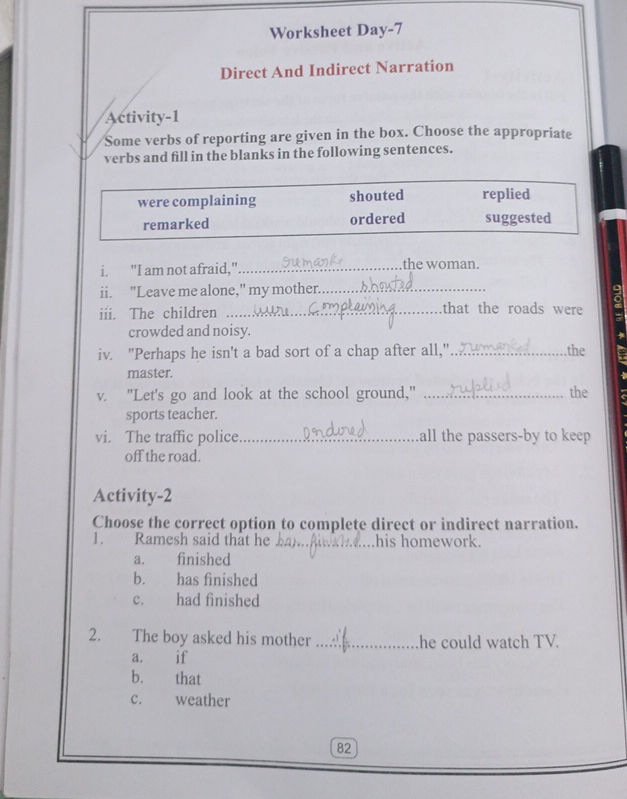 Worksheet Day-7
Direct And Indirect Narration
Activity-1
Some verbs of reporting are given in the box. Choose the appropriate
verbs and fill in the blanks in the following sentences.
were complaining shouted replied
remarked ordered suggested
i. "I am not afraid,"..........remarke..........the woman.
ii. "Leave me alone," my mother..........shouted..........
iii. The children ..........were complaining..........that the roads were
crowded and noisy.
iv. "Perhaps he isn't a bad sort of a chap after all,"..........remarked..........the
master.
v. "Let's go and look at the school ground," ..........replied.......... the
sports teacher.
vi. The traffic police..........ondored..........all the passers-by to keep
off the road.
Activity-2
Choose the correct option to complete direct or indirect narration.
1. Ramesh said that he ....................his homework.
a. finished
b. has finished
c. had finished
2. The boy asked his mother .....if..........he could watch TV.
a. if
b. that
c. weather
82